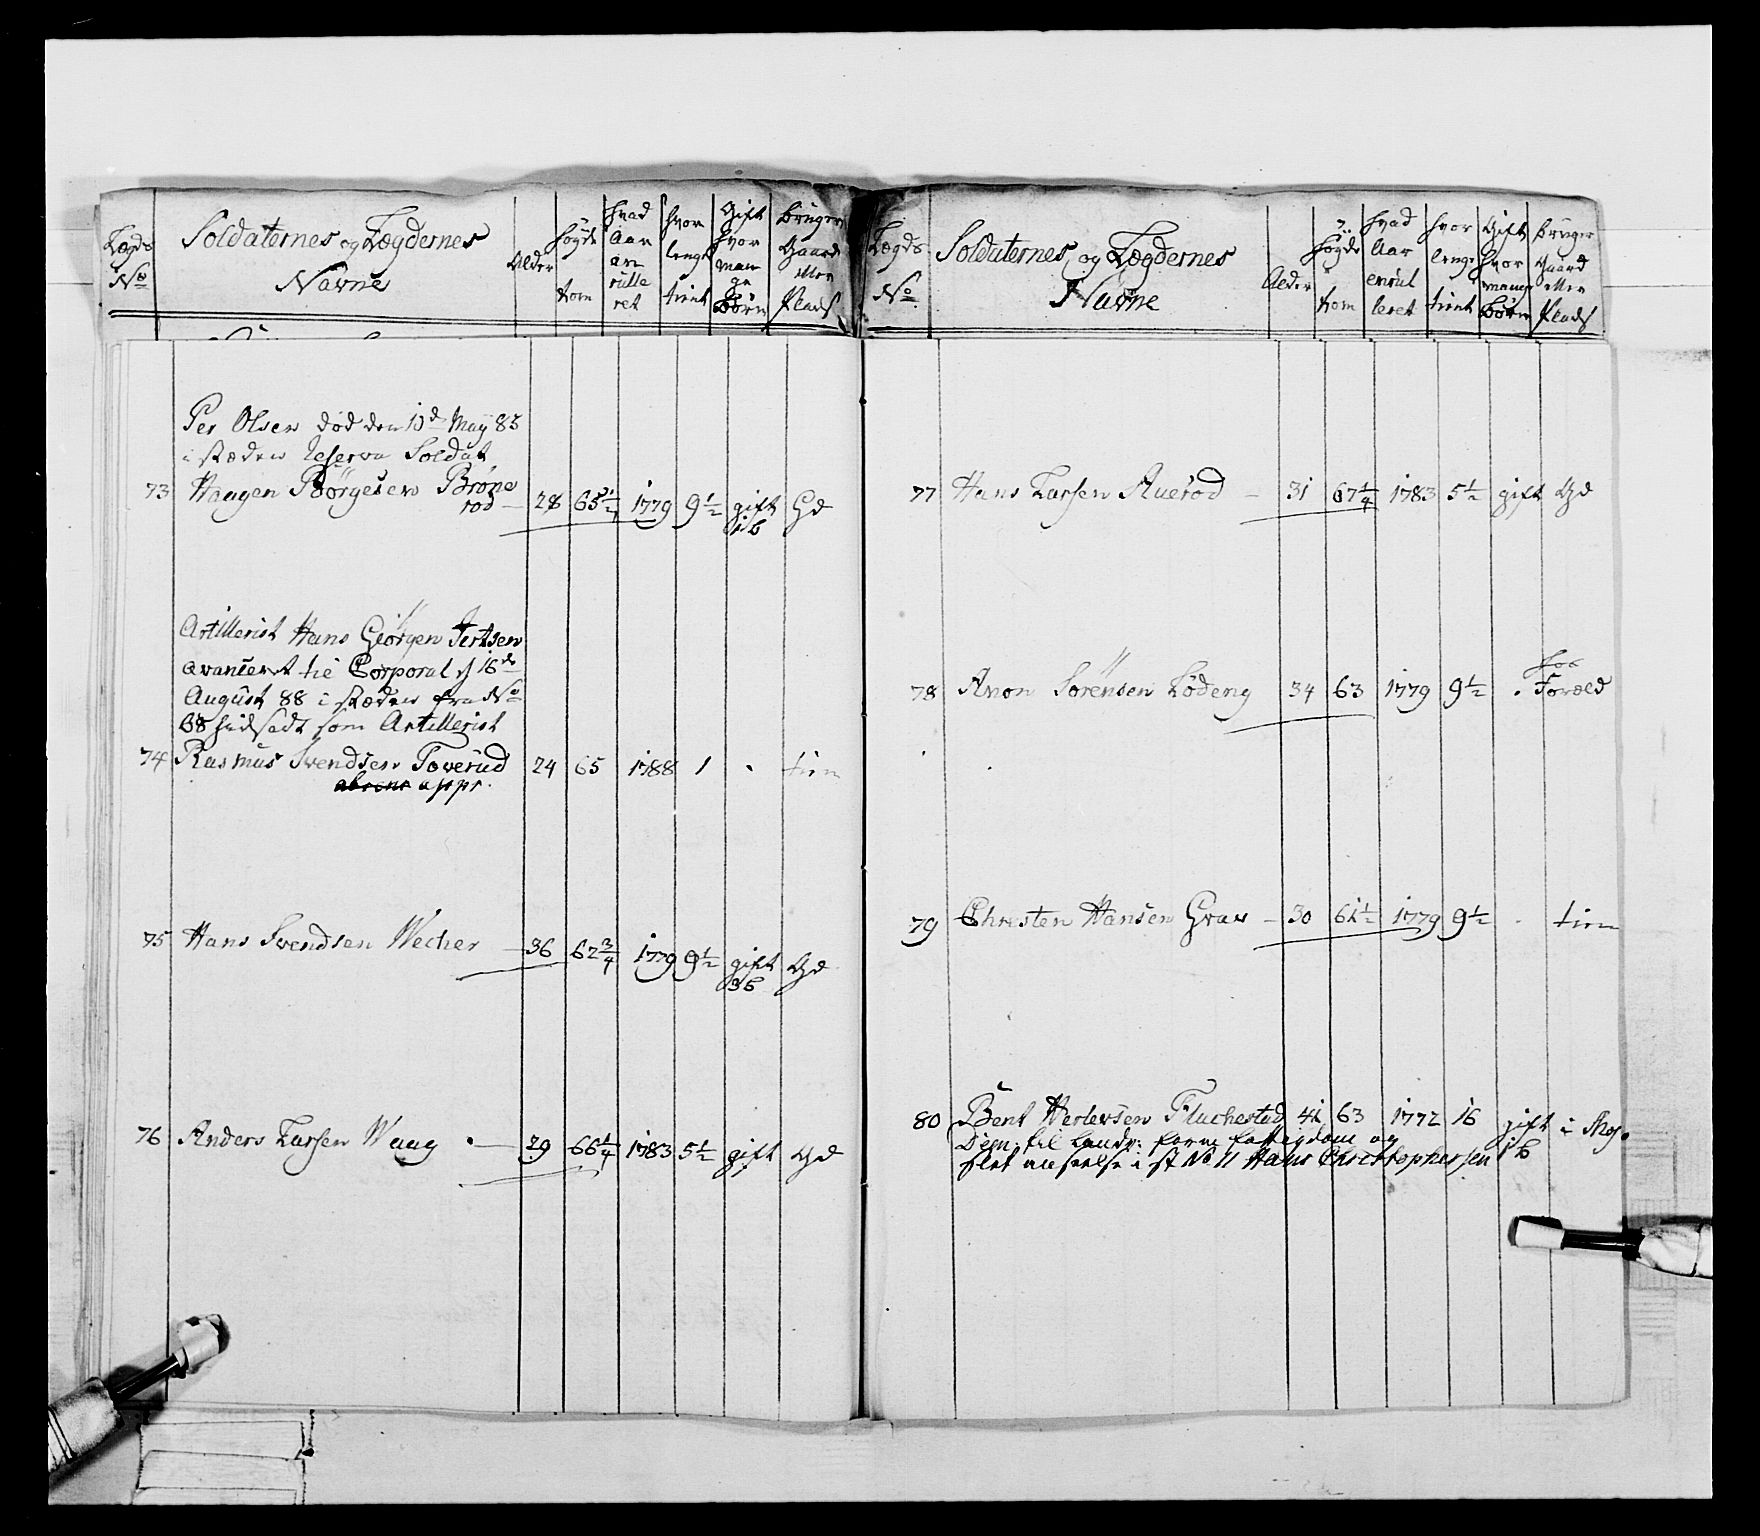 Lægds No
Soldaternes og Lægdernes Navne
Alder
høyde tom
hvad Aar en rulle ret
hvor lenge tient
Gift hvor man ge Börn
bruger Gaard eller Plads
Per Olsen død den 10d May 85
i stæden Reserve Soldat
73 Haagen Börgesen Brøne
rod — 28 65 1/2 1779 9 1/2 gift Gd
1 b
Artillerist Hans Giörgen
avanceret til Corporal d 16de
August 88 i stæden fra No
68 hidsadt som Artillerist
74 Rasmus Svendsen Toverud 24 65 1788 1 . tien
appr.
75 Hans Svendsen Wecher — 36 62 3/4 1779 9 1/2 gift Gd
3 b
76 Anders Larsen Waag — 29 66 1/4 1783 5 1/2 gift Gd
Lægds No
Soldaternes og Lægdernes Navne
Alder
høyde tom
hvad Aar enrul leret
hvor lenge tient
Gift hvor mange Börn
bruger Gaard eller Plads
77 Hans Larsen Auerod — 31 67 1/4 1783 5 1/2 gift Gd
hos
78 Amon Sörensen Lödeng 34 63 1779 9 1/2 . Foræld
79 Christen Hansen Grav — 30 61 1/2 1779 9 1/2 . tien
80 Bent Fluchestad 41 63 1772 16 gift i Mos.
1 b
til Landv: og
slet anseelse i st No 11 Hans Christophersen